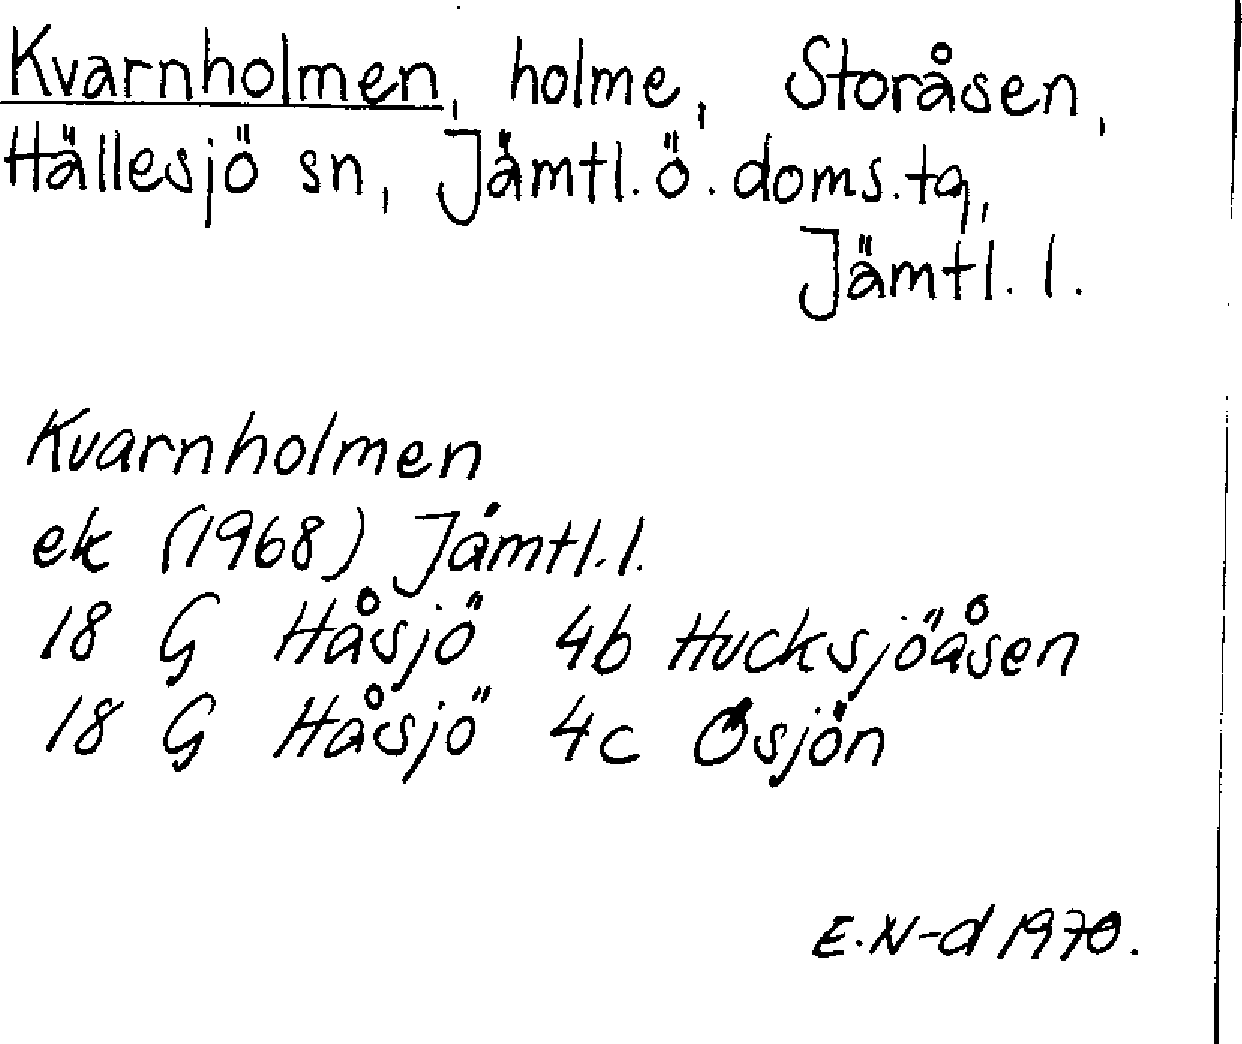 Kvarnholmen, holme, Storåsen,
Hällesjö sn, Jämtl. ö. doms.tg,
Jämtl. l.
Kvarnholmen
ek (1968) Jämtl. l.
18 G Håsjö 4b Hucksjöåsen
18 G Håsjö 4c Ösjön
E. N-d 1970.